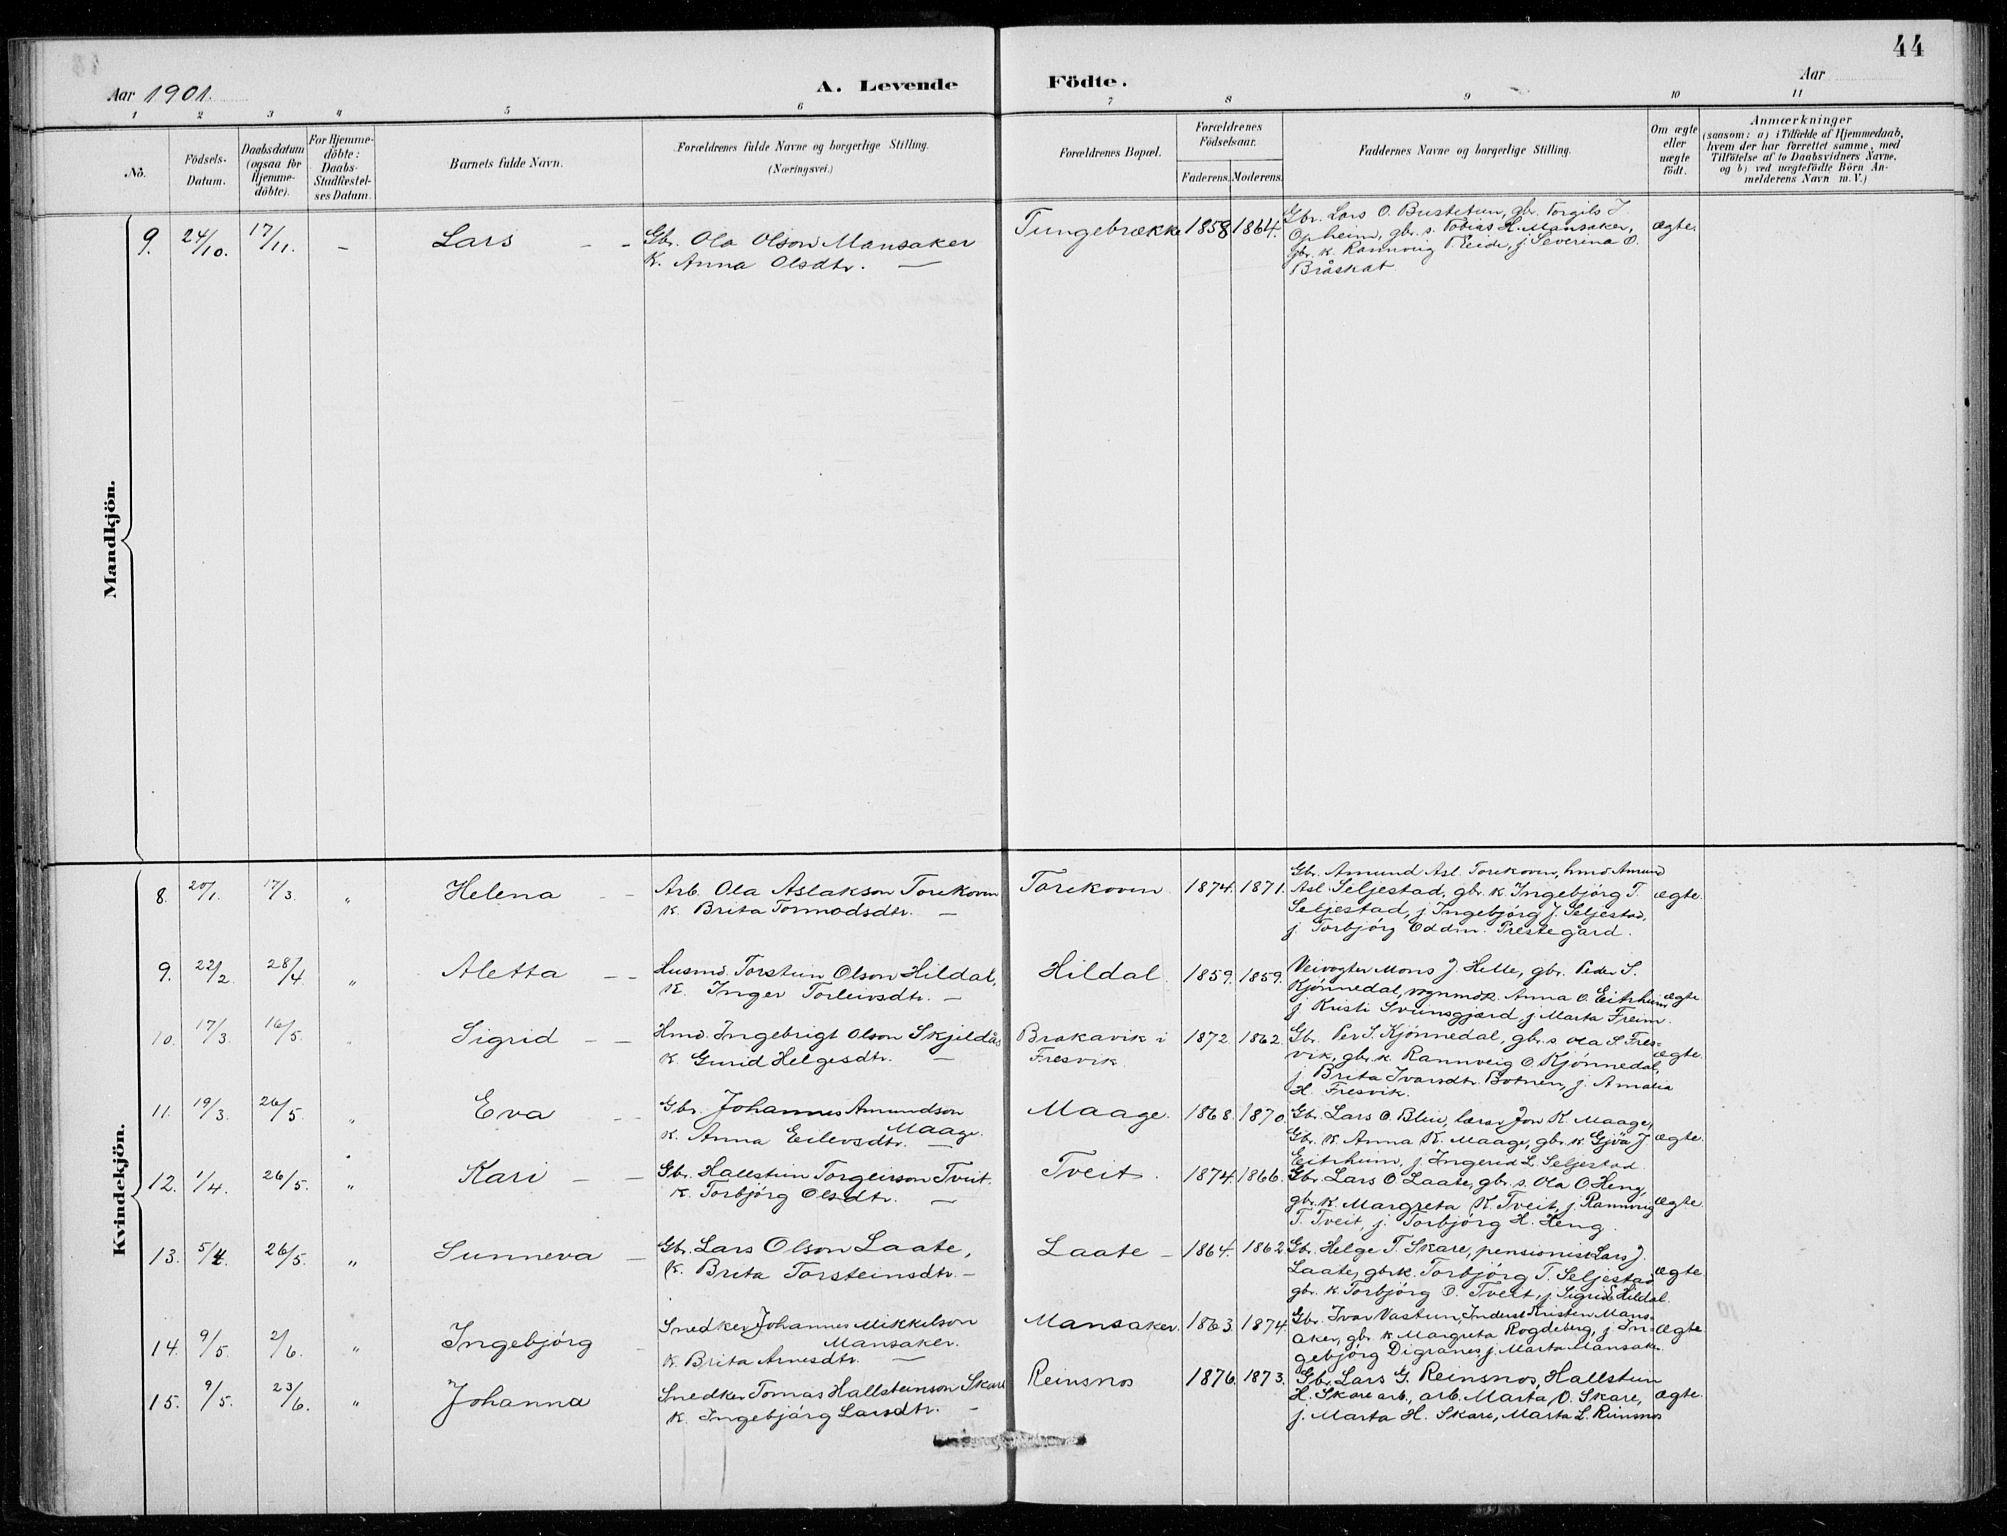 44
Aar 1901.
A. Levende Födte.
Aar
1 2 3 4 5 6 7 8 9 10 11
Nö.
Födsels-
Datum.
Daabsdatum
(ogsaa for
Hjemme-
döbte).
For Hjemme-
döbte:
Daabs-
Stadfæstel-
ses Datum.
Barnets fulde Navn.
Forældrenes fulde Navne og borgerlige Stilling.
(Næringsvei.)
Forældrenes Bopæl.
Forældrenes
Födselsaar.
Faderens. Moderens.
Faddernes Navne og borgerlige Stilling.
Om ægte
eller
uægte
födt.
Anmærkninger
(saasom: a) i Tilfælde af Hjemmedaab,
hvem der har forrettet samme, med
Tilföielse af to Daabsvidners Navne,
og b) ved uægtefödte Börn An-
melderens Navn m. V.)
Mandkjön.
9. 24/10. 17/11. – Lars – –
Gbr. Ola Olson Mansaker
K. Anna Olsdtr. —
Tungebrække 1858 1864.
Gbr. Lars O. Bustetun, gbr. Torgils J.
Opheim, gbr. s. Tobias H. Mansaker,
gbr. k. Rannveig P. Eide, j Severina O.
Bråskat.
ægte.
Kvindekjön.
8. 20/1. 17/3. " Helena –
Arb. Ola Aslakson Torekoven
K. Brita Tormodsdtr. —
Torekoven 1874. 1871.
Gbr. Amund Asl. Torekoven, hmd Amund
Asl. Seljestad, gbr. k. Ingebjörg T.
Seljestad, j Ingebjörg J. Seljestad,
j. Torbjörg Eddm. Prestegård.
ægte.
9. 22/2. 28/4 " Aletta – –
Husmd. Torstein Olson Hildal,
K. Inger Torleivsdtr. —
Hildal 1859. 1859.
Veivogter Mons J. Helle, gbr. Peder S.
Kjönnedal, vognmdk. Anna O. Eitrheim,
j Kristi Sveinsgjærd, j. Marta Freim.
ægte
10. 17/3. 16/5. " Sigrid – –
Hmd. Ingebrigt Olson Skjeldås
K. Gurid Helgesdtr. —
Brakavik i
Fresvik.
1872 1862.
Gbr. Per S. Kjönnedal, gbr. s Ola S. Fres-
vik, gbr. k. Rannveig O. Kjönnedal,
j. Brita Ivarsdtr. Botnen, j. Amalia
H. Fresvik.
ægte.
11. 19/3. 26/5. " Eva –
Gbr. Johannes Amundson
Maage.
K. Anna Eilevsdtr. —
Maage. 1868. 1870.
Gbr. Lars O. Bleie, lærer Jon K. Maage,
Gbr. k. Anna K. Maage, gbr. k. Gjöa J
Eitrheim, j. Ingerid L. Seljestad
ægte.
12. 1/4. 26/5. " Kari – –
Gbr. Hallstein Torgeirson Tveit.
K. Torbjörg Olsdtr. —
Tveit. 1874. 1866.
Gbr. Lars O Laate, gbr. s. Ola O Heng,
gbr. k. Margreta K. Tveit, j. Rannveig
T. Tveit, j. Torbjörg H. Heng.
ægte
13. 5/4. 26/5. " Sunneva –
Gbr. Lars Olson Laate,
K. Brita Torsteinsdtr. –
Laate – 1864. 1862
Gbr. Helge T. Skare, pensionist Lars J.
Laate, gbrk. Torbjörg T. Seljestad
gbr. k. Torbjörg O. Tveit, j. Sigrid E Hildal.
ægte
14. 9/5. 2/6. " Ingebjörg –
Snedker Johannes Mikkelson
Mansaker.
K. Brita Arnesdtr. —
Mansaker. 1863. 1874.
Gbr. Ivar Vastun, Inderst Kristen Mans-
aker, gbr. k Margreta Rogdeberg, j. In-
gebjörg Digranes, j. Marta Mansaker.
ægte
15. 9/5. 23/6. " Johanna
Snedker Tomas Hallsteinson Skare
K. Ingebjörg Larsdtr. –
Reinsnos 1876. 1873.
Gbr. Lars G. Reinsnos, Hallstein
H. Skare arb., arb. Marta O. Skare,
j. Marta H. Skare, Marta L. Reinsnos
ægte